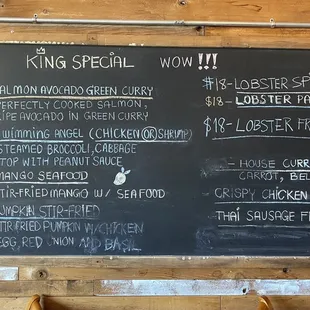 KING SPECIAL WOW !!!
ALMON AVOCADO GREEN CURRY
PERFECTLY COOKED SALMON,
IPE AVOCADO IN GREEN CURRY
wimming ANGEL (CHICKEN OR SHRIMP)
STEAMED BROCCOLI, CABBAGE
TOP WITH PEANUT SAUCE
MANGO SEAFOOD
TIR-FRIED MANGO W/ SEAFOOD
UMPKIN STIR-FRIED
TIR FRIED PUMPKIN W/CHICKEN
EGG, RED UNION AND BASIL
$18-LOBSTER SP
$18- LOBSTER PA
$18-LOBSTER FR
- HOUSE CURR
CARROT, BEL
- CRISPY CHICKEN
THAI SAUSAGE F